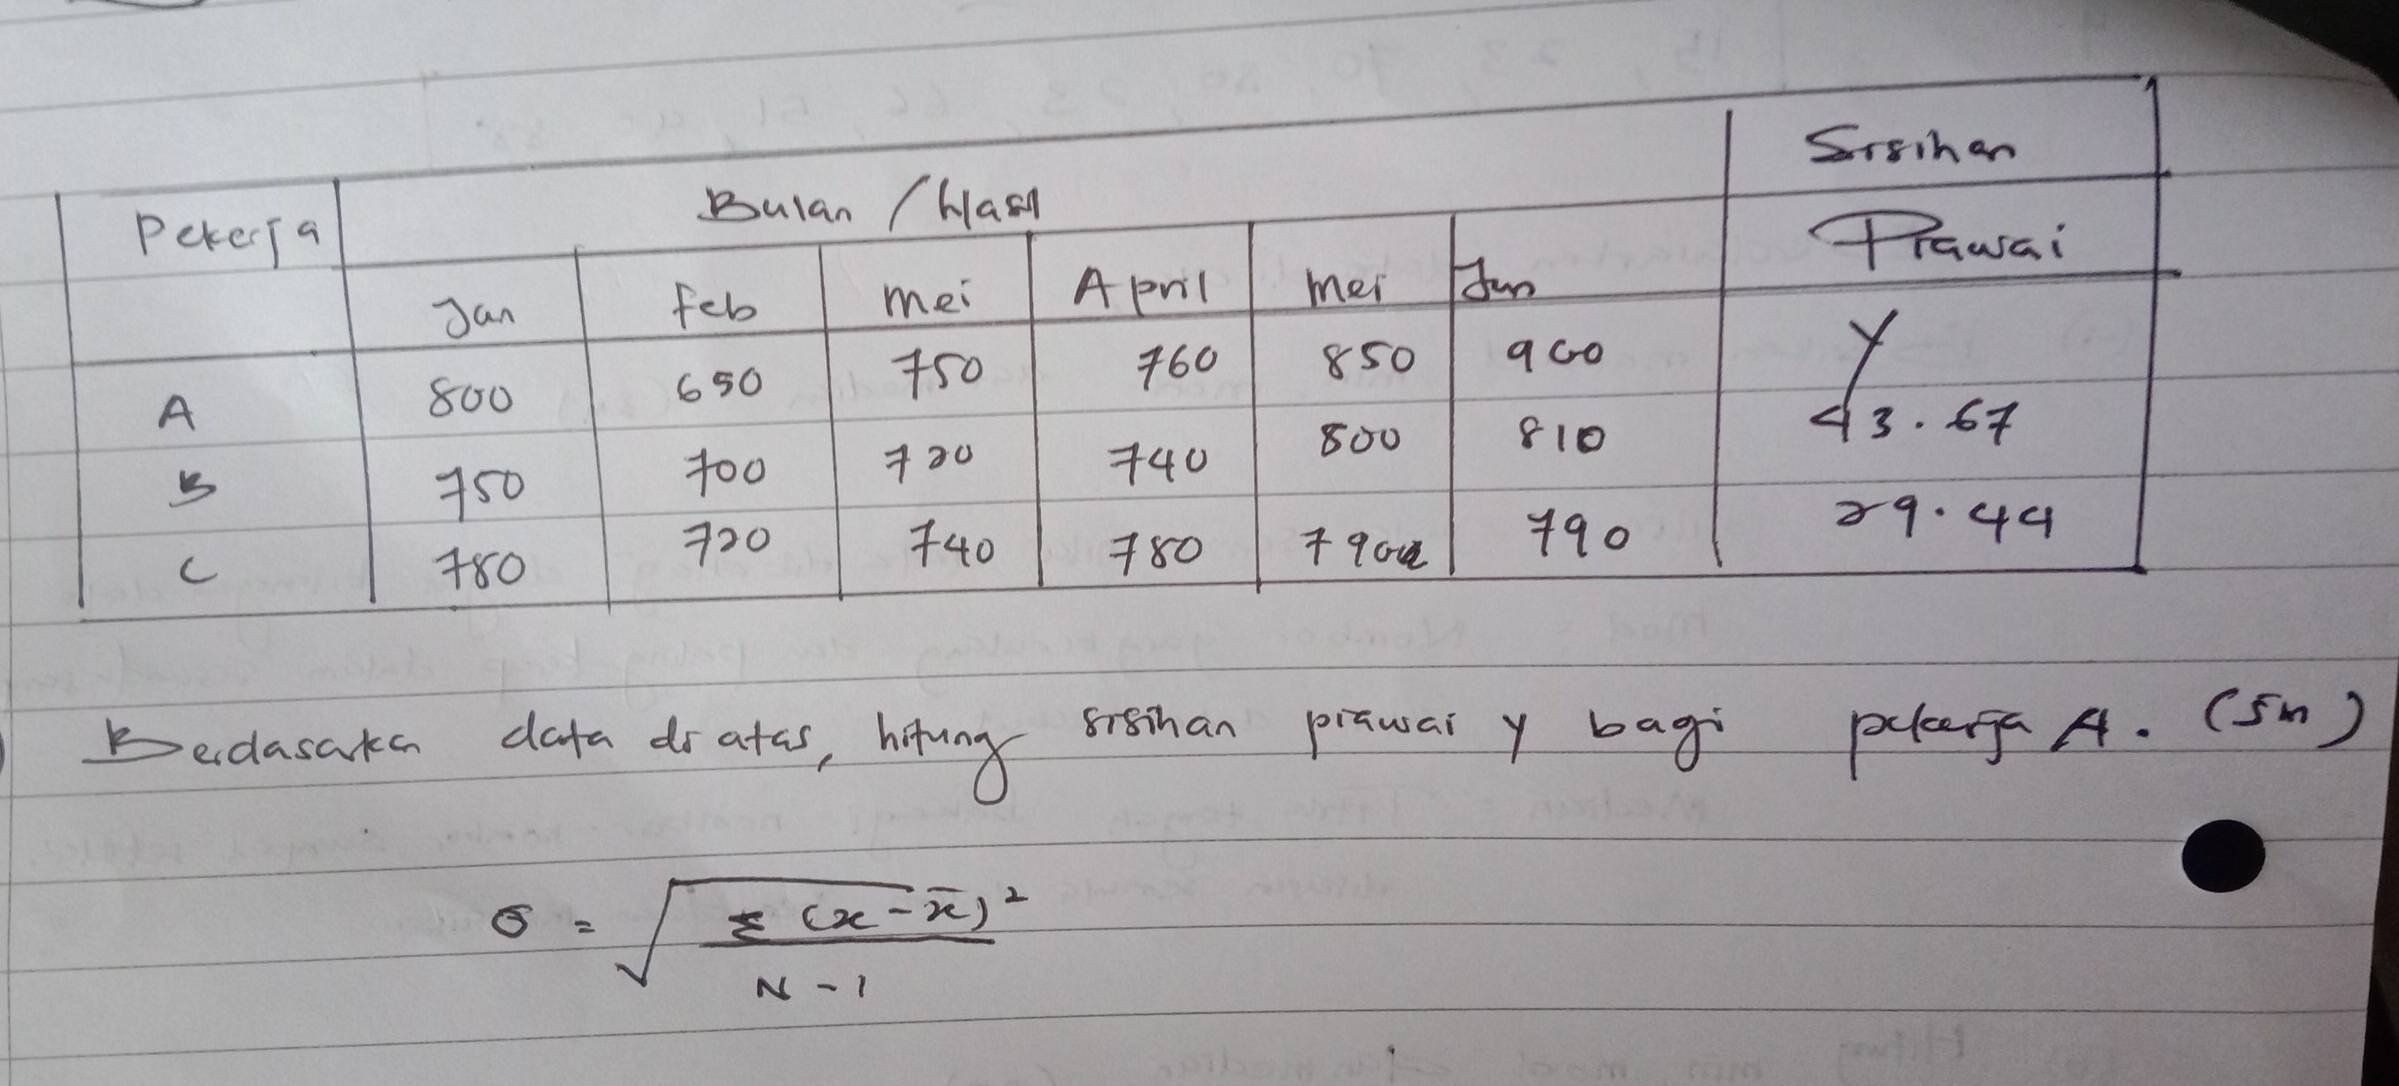 Sisihan
Pekerja Bulan / Hasil Piawai
Jan Feb Mei April Mei Jun
A 800 650 750 760 850 900 y
B 750 700 720 740 800 810 43.67
C 780 720 740 780 790 790 29.44
Berdasarka data di atas, hitung sisihan piawai y bagi pekerja A. (5m)
σ = √ Σ (x - x̄)²
N - 1